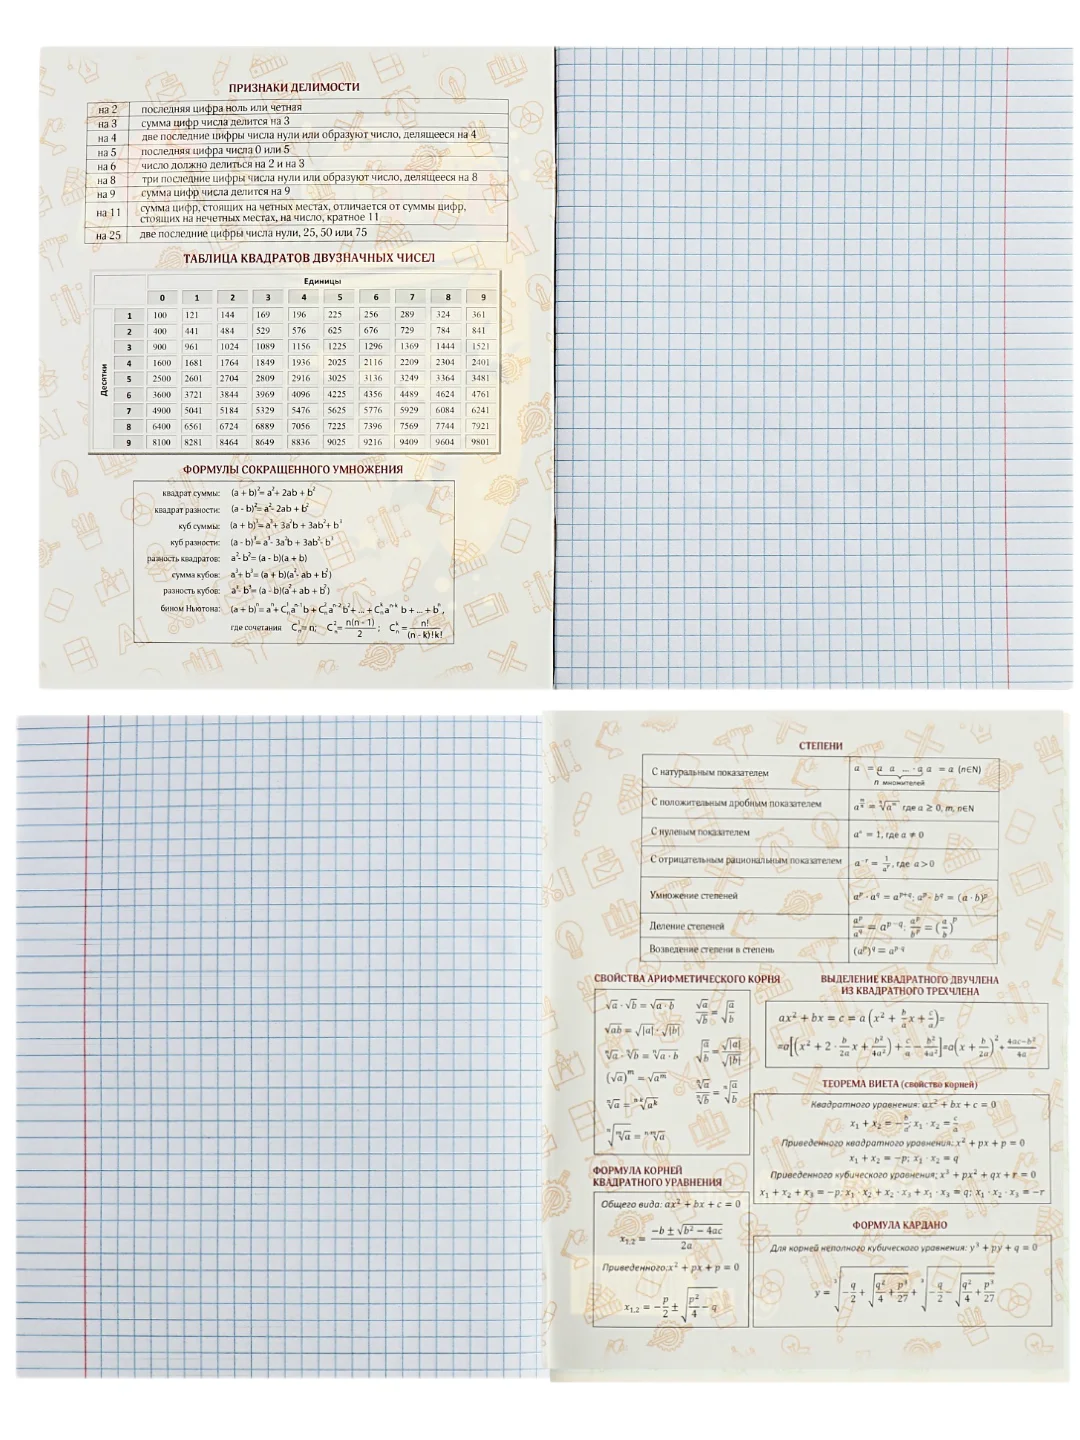 ПРИЗНАКИ ДЕЛИМОСТИ
на 2 последняя цифра ноль или четная
на 3 сумма цифр числа делится на 3
на 4 две последние цифры числа нули или образуют число, делящееся на 4
на 5 последняя цифра числа 0 или 5
на 6 число должно делиться на 2 и на 3
на 8 три последние цифры числа нули или образуют число, делящееся на 8
на 9 сумма цифр числа делится на 9
на 11 сумма цифр, стоящих на четных местах, отличается от суммы цифр,
стоящих на нечетных местах, на число, кратное 11
на 25 две последние цифры числа нули, 25, 50 или 75
ТАБЛИЦА КВАДРАТОВ ДВУЗНАЧНЫХ ЧИСЕЛ
Единицы
0 1 2 3 4 5 6 7 8 9
Десятки
1 100 121 144 169 196 225 256 289 324 361
2 400 441 484 529 576 625 676 729 784 841
3 900 961 1024 1089 1156 1225 1296 1369 1444 1521
4 1600 1681 1764 1849 1936 2025 2116 2209 2304 2401
5 2500 2601 2704 2809 2916 3025 3136 3249 3364 3481
6 3600 3721 3844 3969 4096 4225 4356 4489 4624 4761
7 4900 5041 5184 5329 5476 5625 5776 5929 6084 6241
8 6400 6561 6724 6889 7056 7225 7396 7569 7744 7921
9 8100 8281 8464 8649 8836 9025 9216 9409 9604 9801
ФОРМУЛЫ СОКРАЩЕННОГО УМНОЖЕНИЯ
квадрат суммы: (a + b)²= a²+ 2ab + b²
квадрат разности: (a - b)²= a²- 2ab + b²
куб суммы: (a + b)³= a³+ 3a²b + 3ab²+ b³
куб разности: (a - b)³= a³- 3a²b + 3ab²- b³
разность квадратов: a²- b²= (a - b)(a + b)
сумма кубов: a³+ b³= (a + b)(a²- ab + b²)
разность кубов: a³- b³= (a - b)(a²+ ab + b²)
бином Ньютона: (a + b)ⁿ= aⁿ+ C¹ₙaⁿ⁻¹b + C²ₙaⁿ⁻²b²+ ... + Cᵏₙaⁿ⁻ᵏ b + ... + bⁿ,
где сочетания C¹ₙ= n; C²ₙ= n(n - 1)/2 ; Cᵏₙ = n!/(n - k)!k!
СТЕПЕНИ
С натуральным показателем a = a a ... · a a = a (n∈N)
n множителей
С положительным дробным показателем a^(m/n) = ⁿ√aᵐ где a ≥ 0, m, n∈N
С нулевым показателем a° = 1, где a ≠ 0
С отрицательным рациональным показателем a⁻ʳ = 1/aʳ, где a > 0
Умножение степеней aᵖ · a^q = a^(p+q); aᵖ · b^q = (a · b)ᵖ
Деление степеней aᵖ/a^q = a^(p−q); aᵖ/bᵖ = (a/b)ᵖ
Возведение степени в степень (aᵖ)^q = a^(p·q)
СВОЙСТВА АРИФМЕТИЧЕСКОГО КОРНЯ
√a · √b = √(a · b) √a/√b = √(a/b)
√(ab) = √|a| · √|b| √(a/b) = √|a|/√|b|
ⁿ√a · ⁿ√b = ⁿ√(a · b)
(√a)ᵐ = √aᵐ ⁿ√a/ⁿ√b = ⁿ√(a/b)
ⁿ√a = ⁿ·ᵏ√aᵏ
ⁿ√(ᵐ√a) = ⁿ·ᵐ√a
ВЫДЕЛЕНИЕ КВАДРАТНОГО ДВУЧЛЕНА
ИЗ КВАДРАТНОГО ТРЕХЧЛЕНА
ax² + bx = c = a(x² + b/a x + c/a)=
=a[(x² + 2 · b/2a x + b²/4a²) + c/a − b²/4a²]=a(x + b/2a)² + 4ac−b²/4a
ТЕОРЕМА ВИЕТА (свойство корней)
Квадратного уравнения: ax² + bx + c = 0
x₁ + x₂ = −b/a; x₁ · x₂ = c/a
Приведенного квадратного уравнения: x² + px + p = 0
x₁ + x₂ = −p; x₁ · x₂ = q
Приведенного кубического уравнения; x³ + px² + qx + r = 0
x₁ + x₂ + x₃ = −p; x₁ · x₂ + x₂ · x₃ + x₁ · x₃ = q; x₁ · x₂ · x₃ = −r
ФОРМУЛА КОРНЕЙ
КВАДРАТНОГО УРАВНЕНИЯ
Общего вида: ax² + bx + c = 0
x₁,₂ = −b ± √(b² − 4ac)/2a
Приведенного: x² + px + p = 0
x₁,₂ = −p/2 ± √(p²/4 − q)
ФОРМУЛА КАРДАНО
Для корней неполного кубического уравнения: y³ + py + q = 0
y = ³√(−q/2 + √(q²/4 + p³/27)) + ³√(−q/2 − √(q²/4 + p³/27))